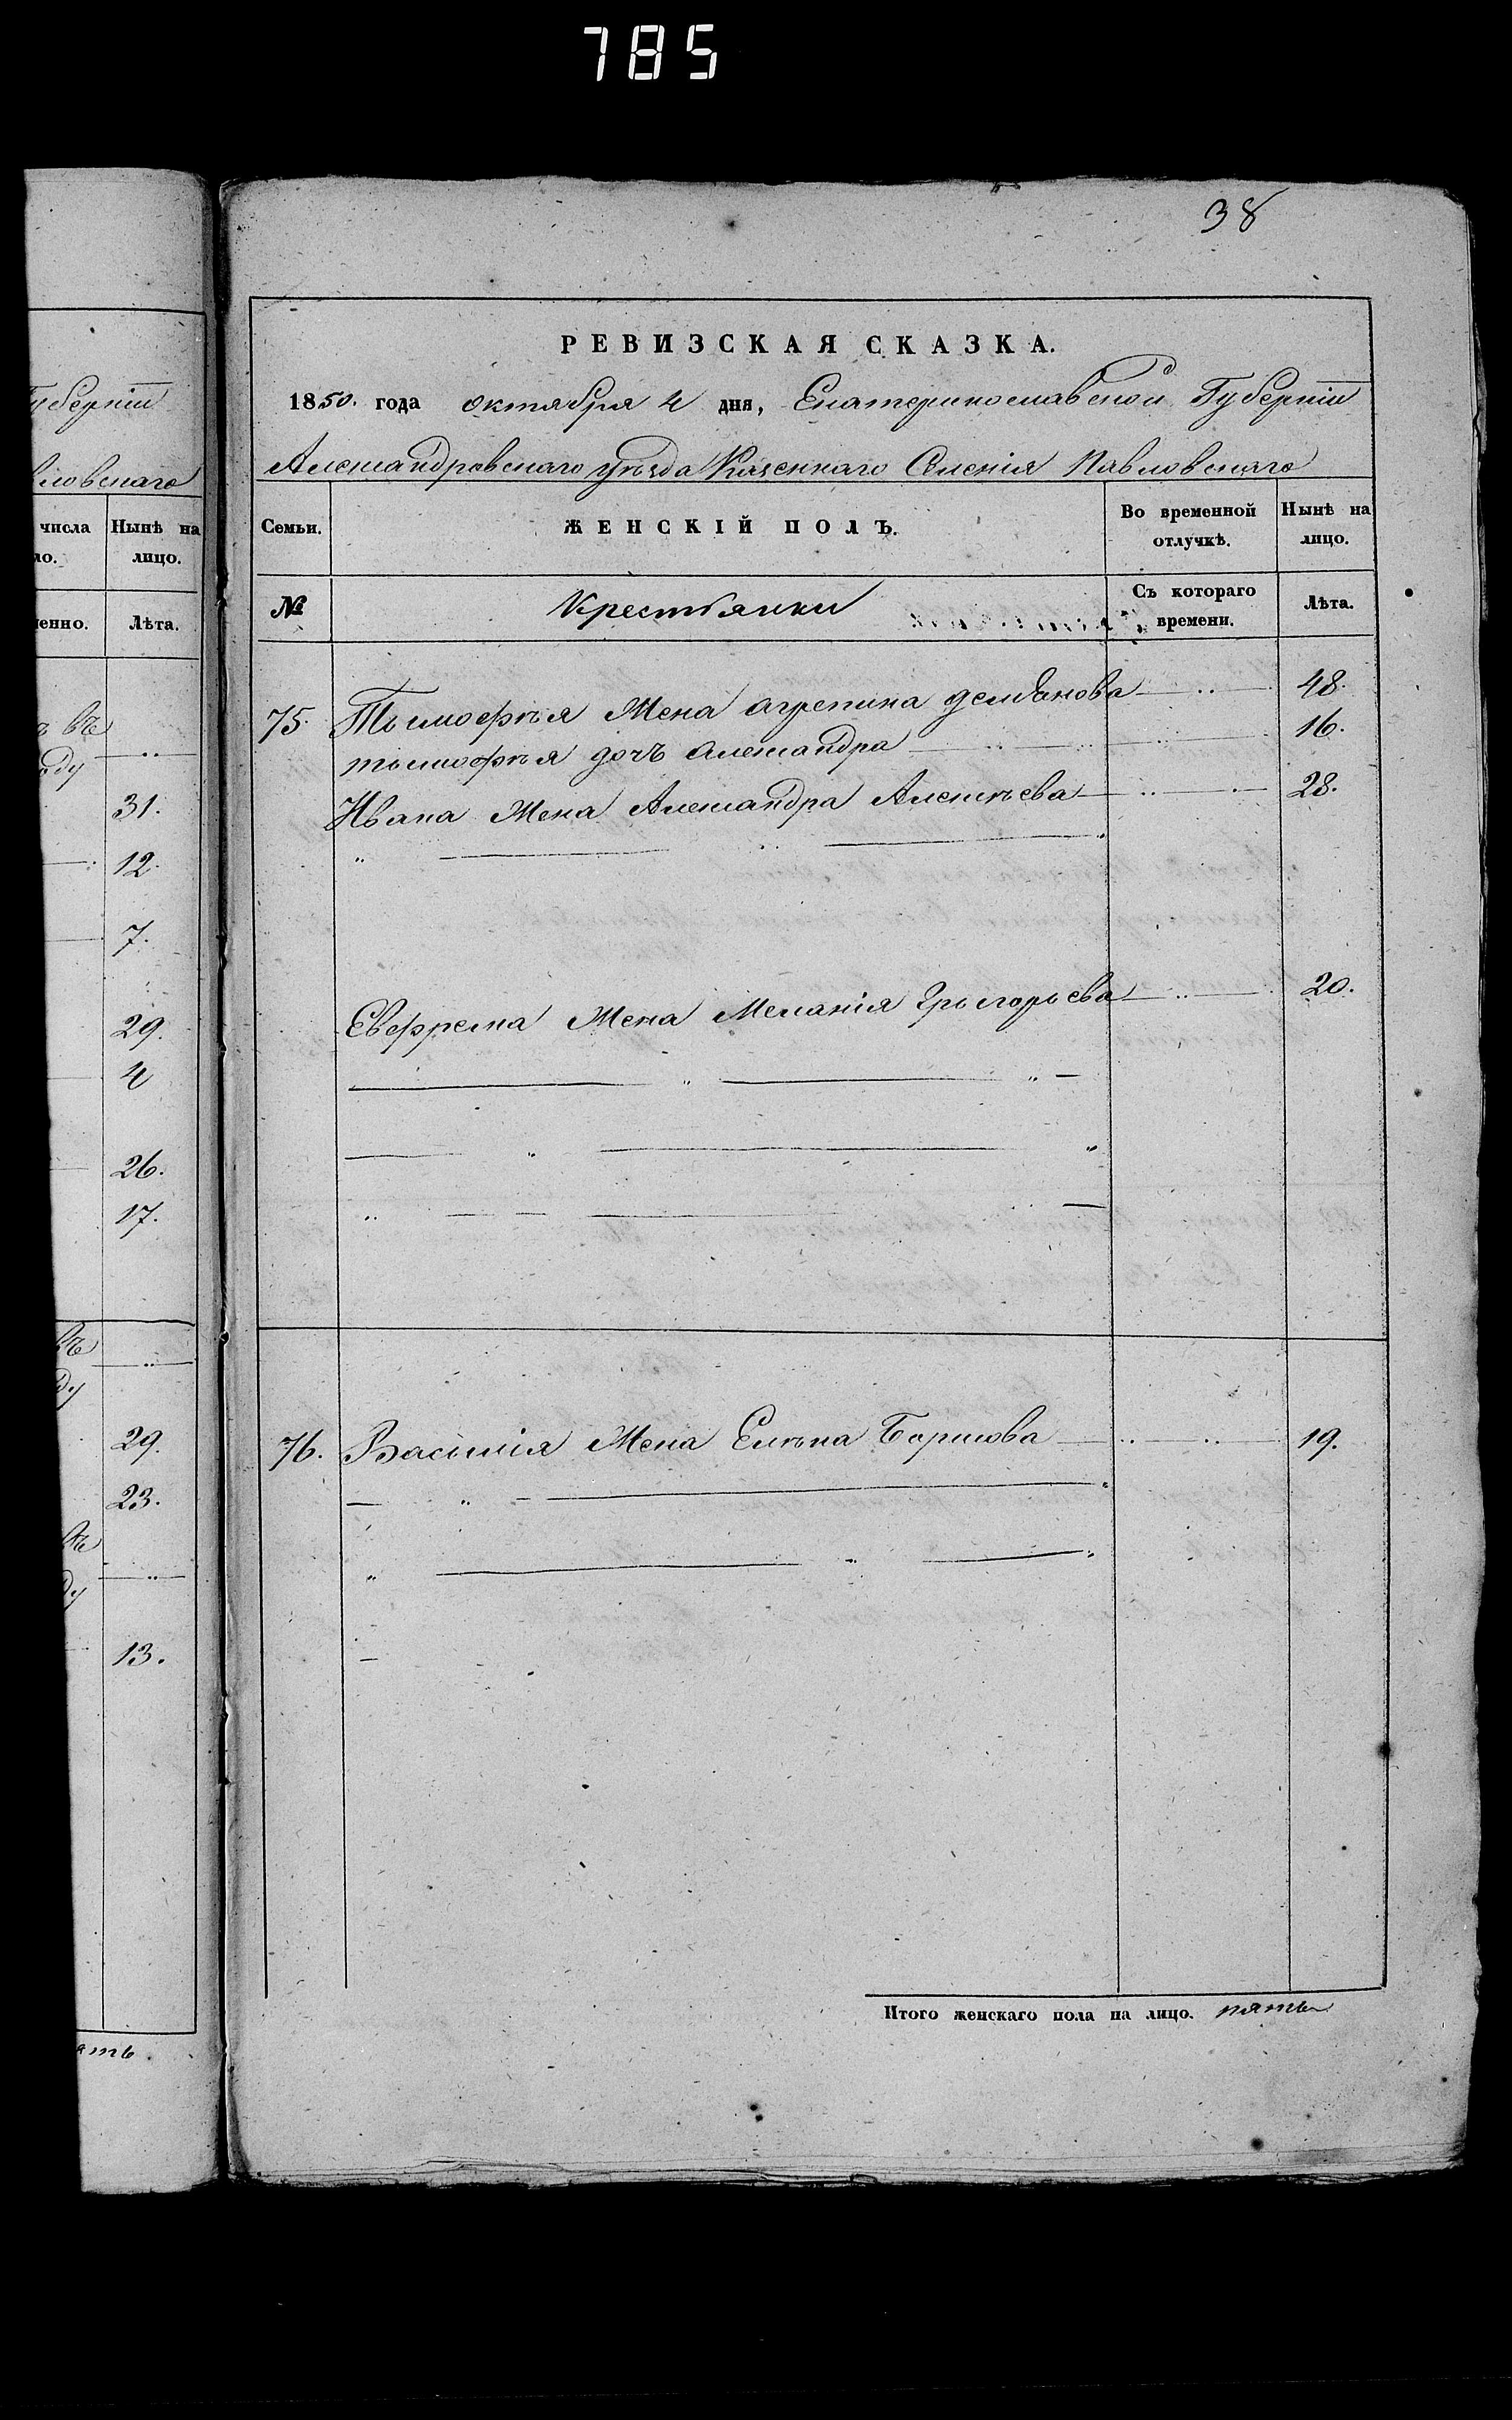 785
38
РЕВИЗСКАЯ СКАЗКА.
1850. года октября 4 дня, Екатеринославской Губерніи
Александровскаго уѣзда Казеннаго Селенія Павловскаго
Семьи. ЖЕНСКІЙ ПОЛЪ. Во временной отлучкѣ. Нынѣ на лицо.
№ Крестьянки Съ котораго времени. Лѣта.
75. Тымофѣя Жена Агрепина демьянова 48.
тымофѣя дочъ Александра 16.
Ивана Жена Александра Алексѣева 28.
Евфрема Жена Меланія Грыгорьева 20.
76. Василія Жена Елѣна Борисова 19.
Итого женскаго пола на лицо. пять
уберніи
ловскаго
числа Нынѣ на
ло. лицо.
енно. Лѣта.
въ
оду
31.
12.
7.
29.
4
26.
17.
въ
ду
29.
23.
въ
ду
13.
ять